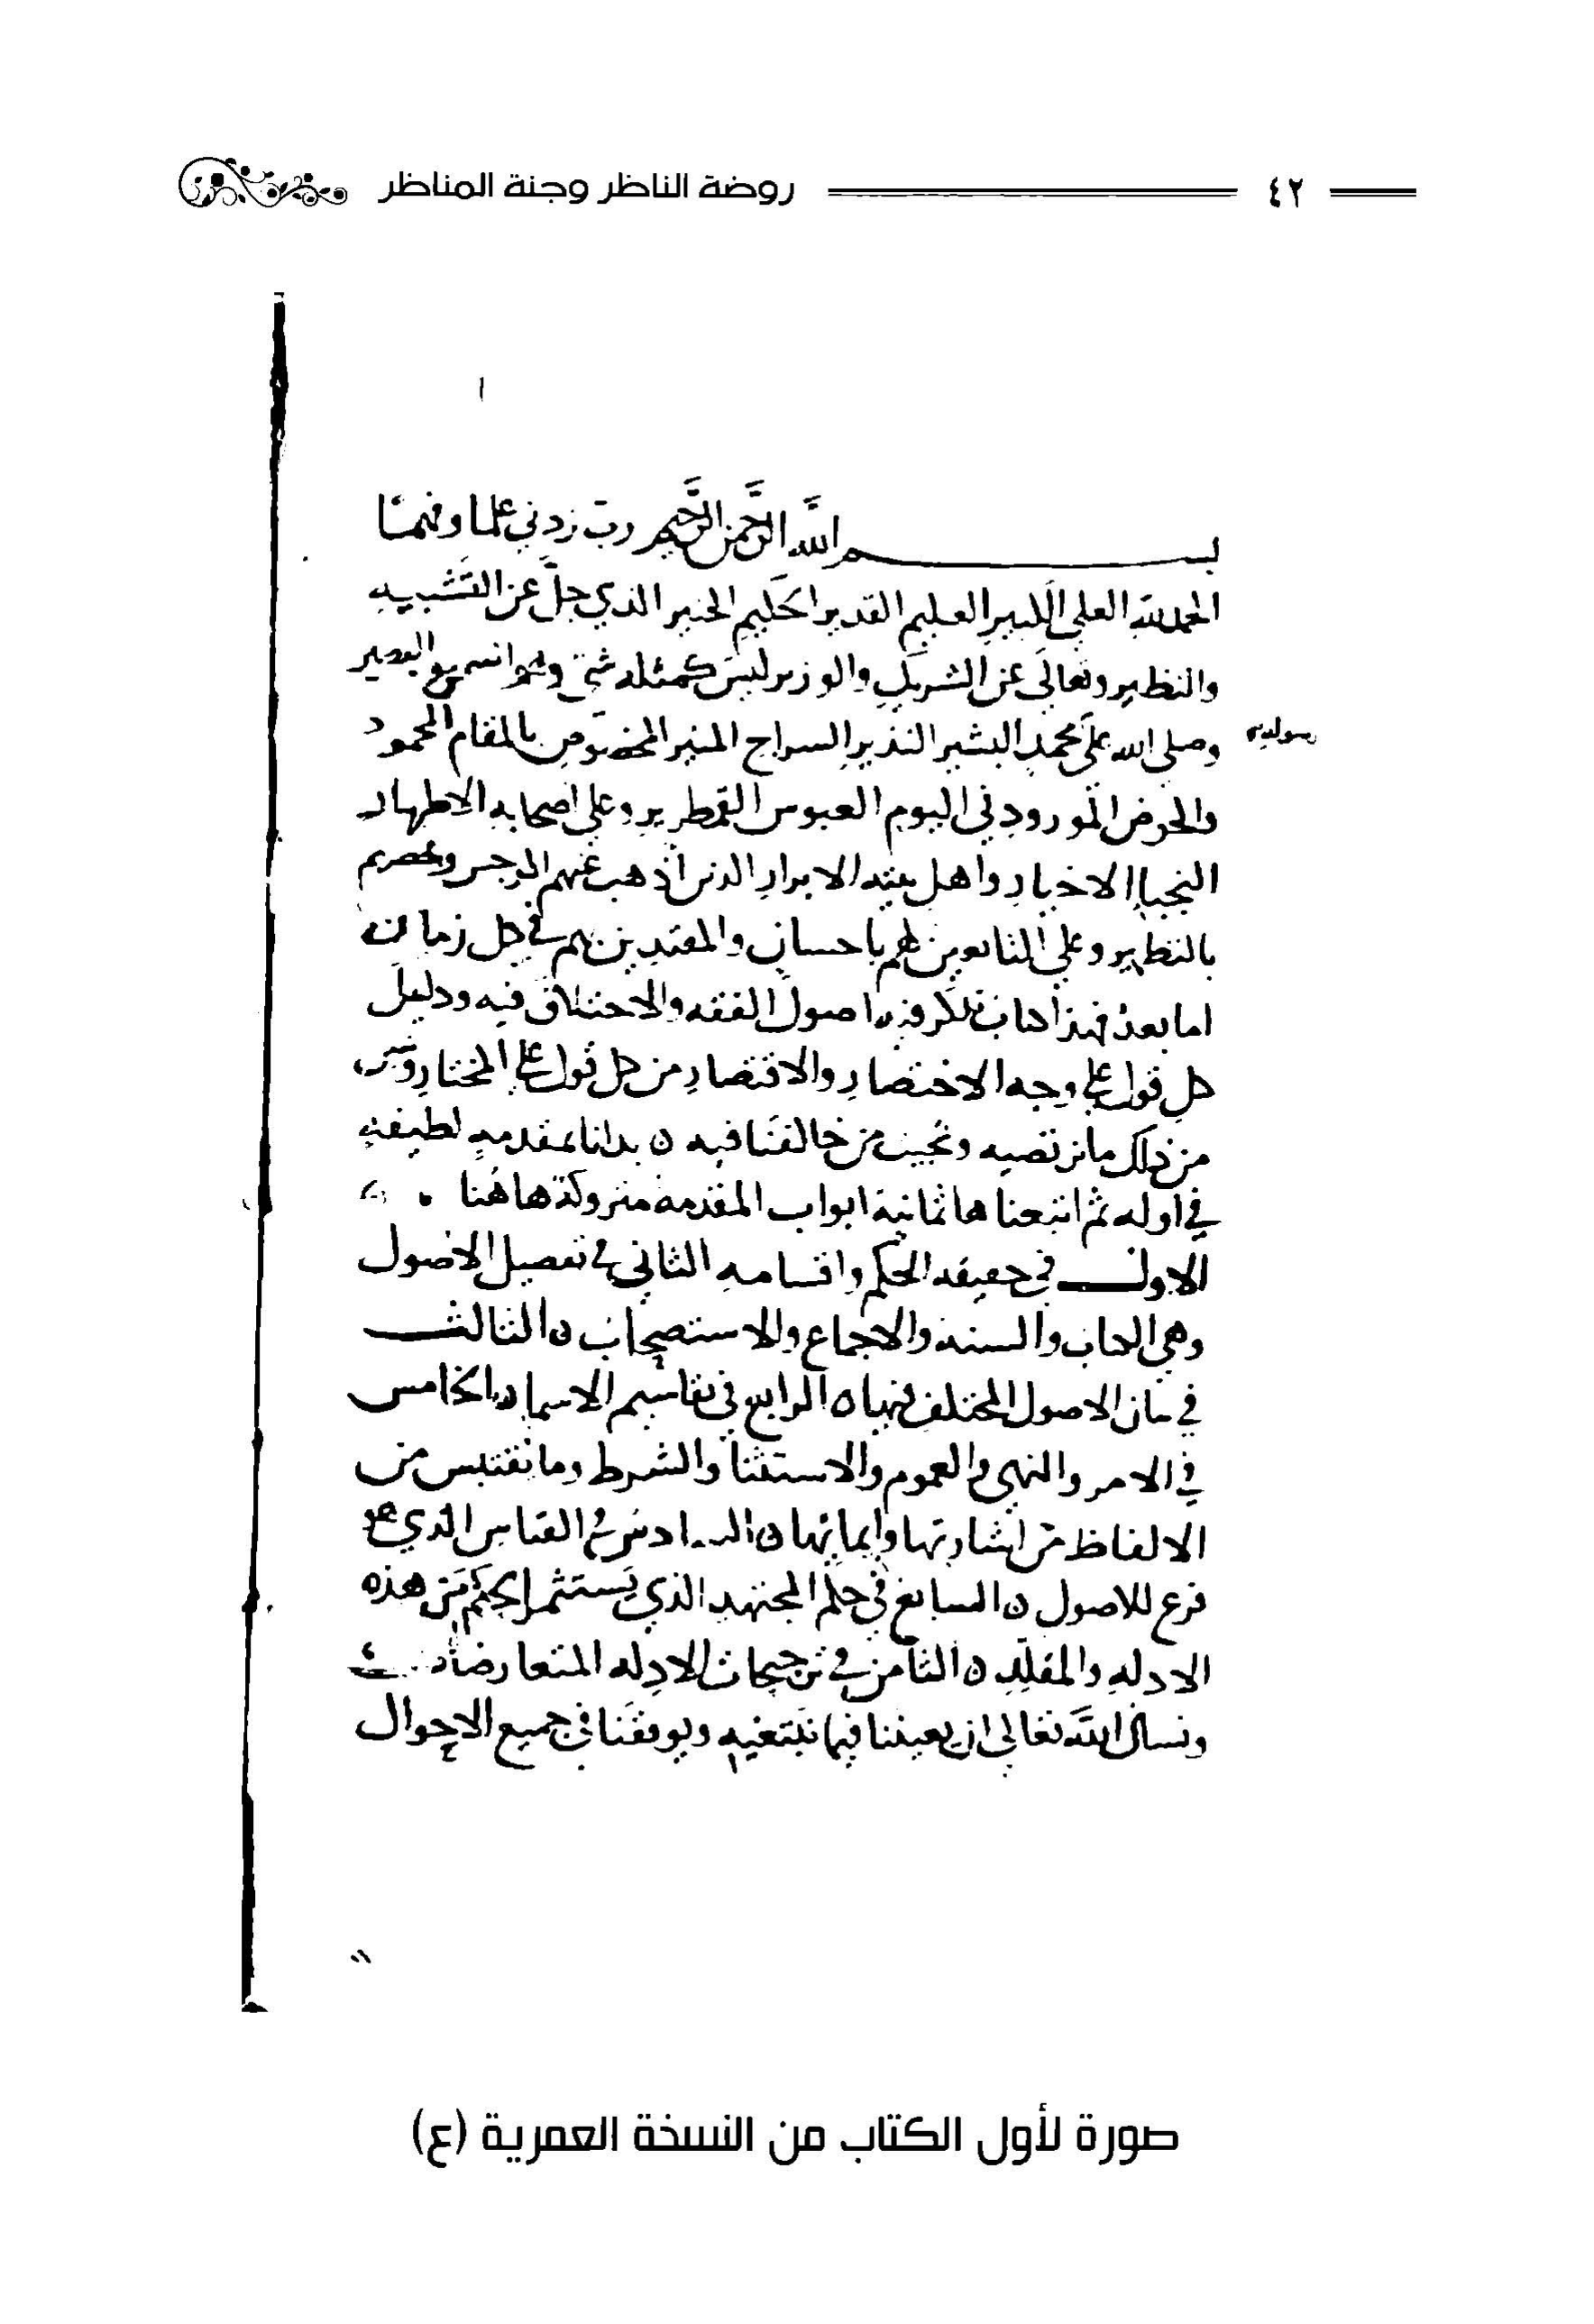 ٤٢ روضة الناظر وجنة المناظر
بسم الله الرَّحمن الرَّحيم رب زدني علما وفهمًا
الحمد لله العلي الكبير العليم القدير الحكيم الخبير الذي جلَّ عن التشبيه
والنظير وتعالى عن الشريك والوزير ليس كمثله شي وهو السميع البصير
وصلى الله على محمد البشير النذير السراج المنير المخصوص بالمقام المحمود
رسوله
والحوض المورود في اليوم العبوس القمطرير وعلى اصحابه الاطهار
النجبا الاخيار واهل بيته الابرار الذين اذهب عنهم الرجس وخصهم
بالتطهير وعلى التابعين لهم باحسان والمقتدين بهم في كل زمان
اما بعد فهذا كتاب نذكر فيه اصول الفقه والاختلاف فيه ودليل
كل قول على وجه الاختصار والاقتصار من كل قول على المختار ونبين
من ذلك ما نرتضيه ونجيب من خالفنا فيه ه بدانا بمقدمه لطيفه
في اوله ثم اتبعناها ثمانية ابواب المقدمة متروكة هاهنا
الاول في حقيقه الحكم واقسامه الثاني في تفصيل الاصول
وهي الكتاب والسنة والاجماع والاستصحاب ه الثالث
في بيان الاصول المختلف فيها ه الرابع في تقاسيم الاسما ه الخامس
في الامر والنهي والعموم والاستثنا والشرط وما يقتبس من
الالفاظ من اشارتها وايمائها ه السادس في القياس الذي هو
فرع للاصول ه السابع في حكم المجتهد الذي يستثمر الحكم من هذه
الادله والمقلد ه الثامن في ترجيحات الادله المتعارضات
ونسال الله تعالى ان يعيننا فيما نبتغيه ويوفقنا في جميع الاحوال
صورة لأول الكتاب من النسخة العمرية (ع)